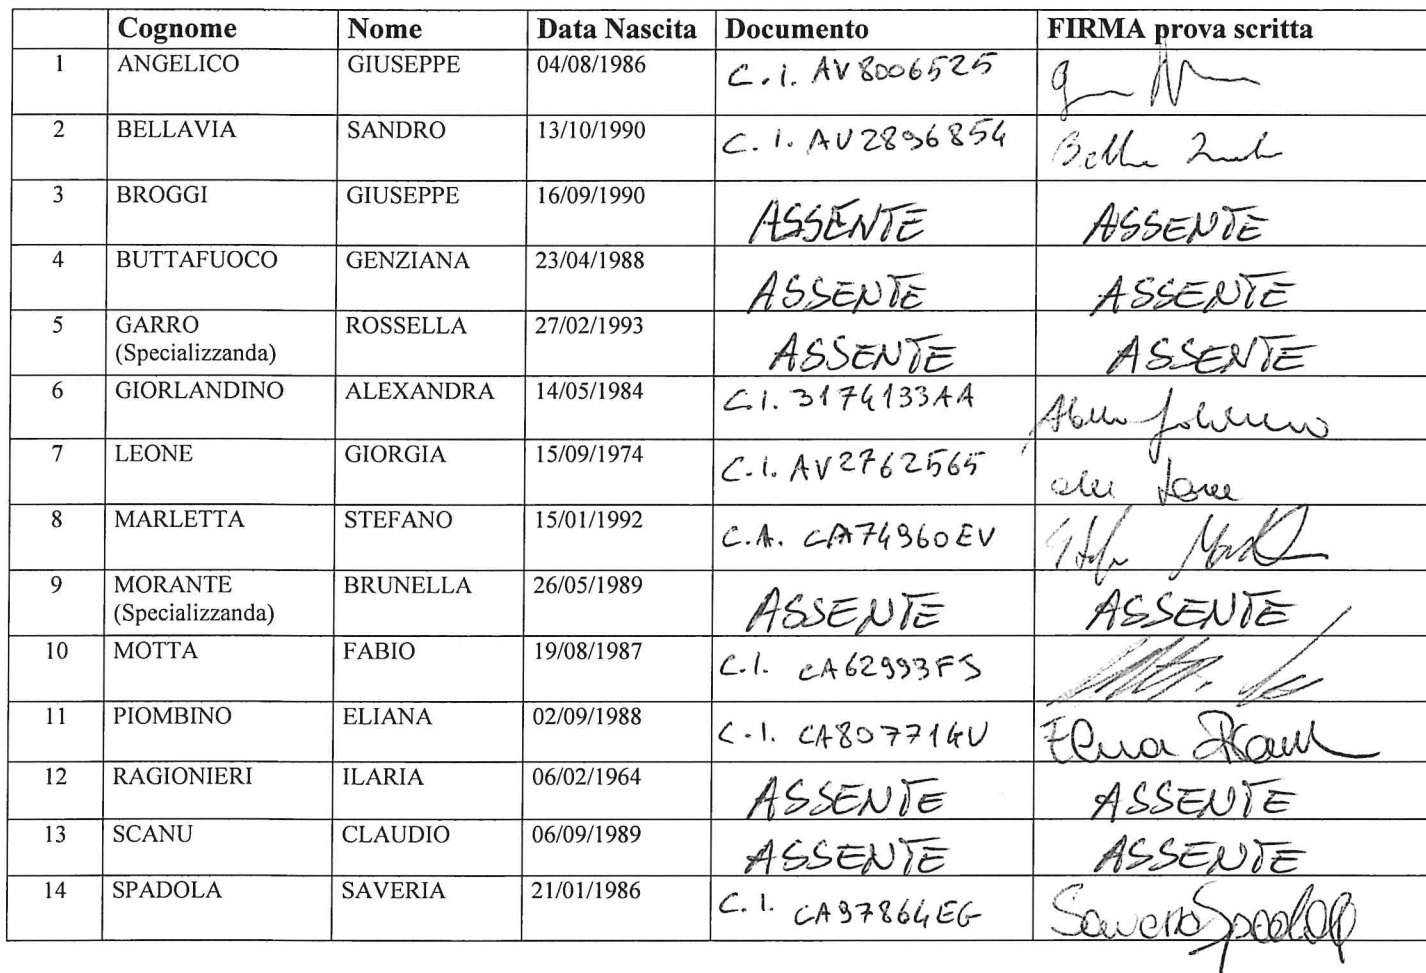 Cognome Nome Data Nascita Documento FIRMA prova scritta
1 ANGELICO GIUSEPPE 04/08/1986 C.I. AV8006525
2 BELLAVIA SANDRO 13/10/1990 C.I. AV2896854
3 BROGGI GIUSEPPE 16/09/1990 ASSENTE ASSENTE
4 BUTTAFUOCO GENZIANA 23/04/1988 ASSENTE ASSENTE
5 GARRO ROSSELLA 27/02/1993 ASSENTE ASSENTE
(Specializzanda)
6 GIORLANDINO ALEXANDRA 14/05/1984 C.I. 3174133AA
7 LEONE GIORGIA 15/09/1974 C.I. AV2762565
8 MARLETTA STEFANO 15/01/1992 C.A. CA74960EV
9 MORANTE BRUNELLA 26/05/1989 ASSENTE ASSENTE
(Specializzanda)
10 MOTTA FABIO 19/08/1987 C.I. CA62993FS
11 PIOMBINO ELIANA 02/09/1988 C.I. CA80771GV
12 RAGIONIERI ILARIA 06/02/1964 ASSENTE ASSENTE
13 SCANU CLAUDIO 06/09/1989 ASSENTE ASSENTE
14 SPADOLA SAVERIA 21/01/1986 C.I. CA97864EG Saveria Spadola